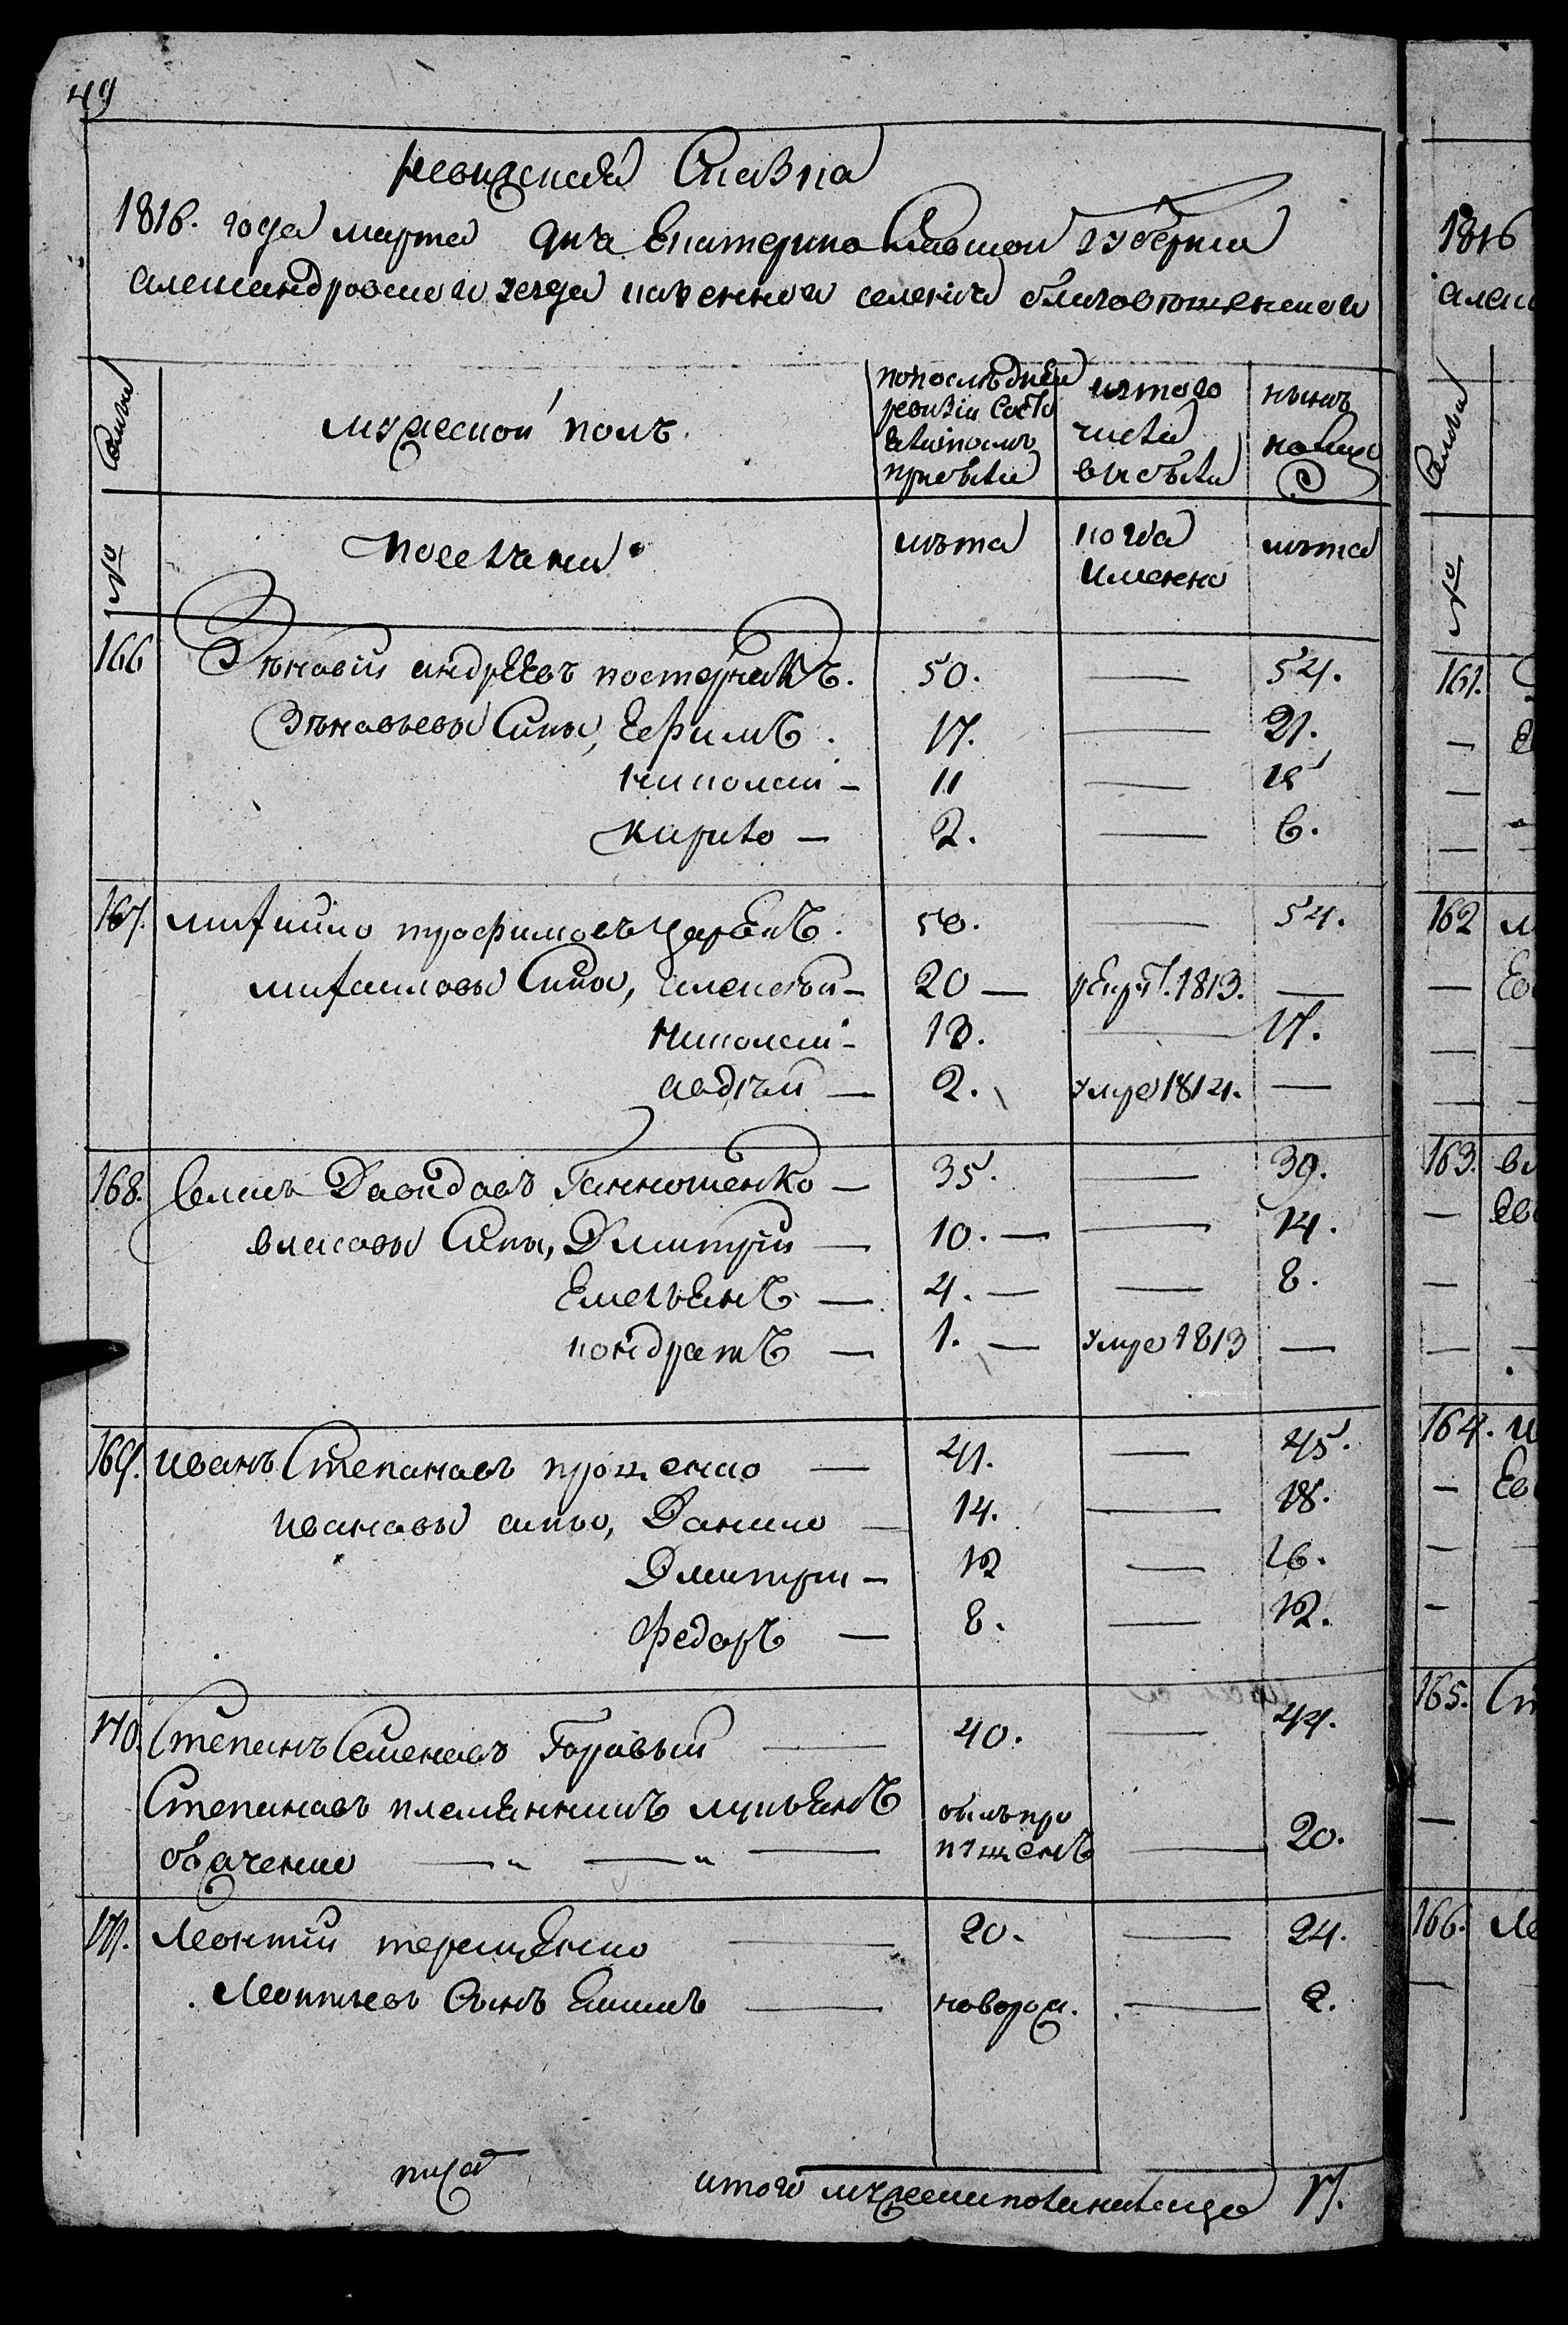 49
ревижская Сказка
1816. года марта дня Екатеринославской губернии
александровского уезда казенного селения благовещенского
Семьи
мужеской полъ.
попоследней ревизии состояло и после прибыло
изтого числа выбыло
ныне налицо
№
поселяне
лета
когда именно
лета
166 Зеновий андреевъ постернакъ. 50. — 54.
Зеновьевы Сыны, Ефимъ. 17. — 21.
николай — 11 — 15
кирило — 2. — 6.
167. михайло трофимовъ 50. — 54.
михаиловы Сыны, алексей — 20 — рекрут. 1813. —
николай — 13. — 17.
авдей — 2. умре 1814. —
168. власъ Давидовъ Ганношенко — 35. — 39.
власовы Сыны, Дмитрий — 10. — — 14.
Емельянъ — 4. — — 8.
кондратъ — 1. — умре 1813 —
169. иванъ Степановъ проценко — 41. — 45.
ивановы сыны, Данило — 14. — 18.
Дмитрий — 12 — 16.
Федоръ — 8. — 12.
170. Степанъ Семеновъ Горовый — 40. — 44.
Степановъ племянникъ лукьянъ былъ про
овчаренко — „ — „ — пущенъ — 20.
171. Леонтий терещенко — 20. — 24.
Леонтьевъ Сынъ — новорож. — 2.
итого мужеска пола налицо 17.
1816
№
161.
162
163.
164.
165.
166.